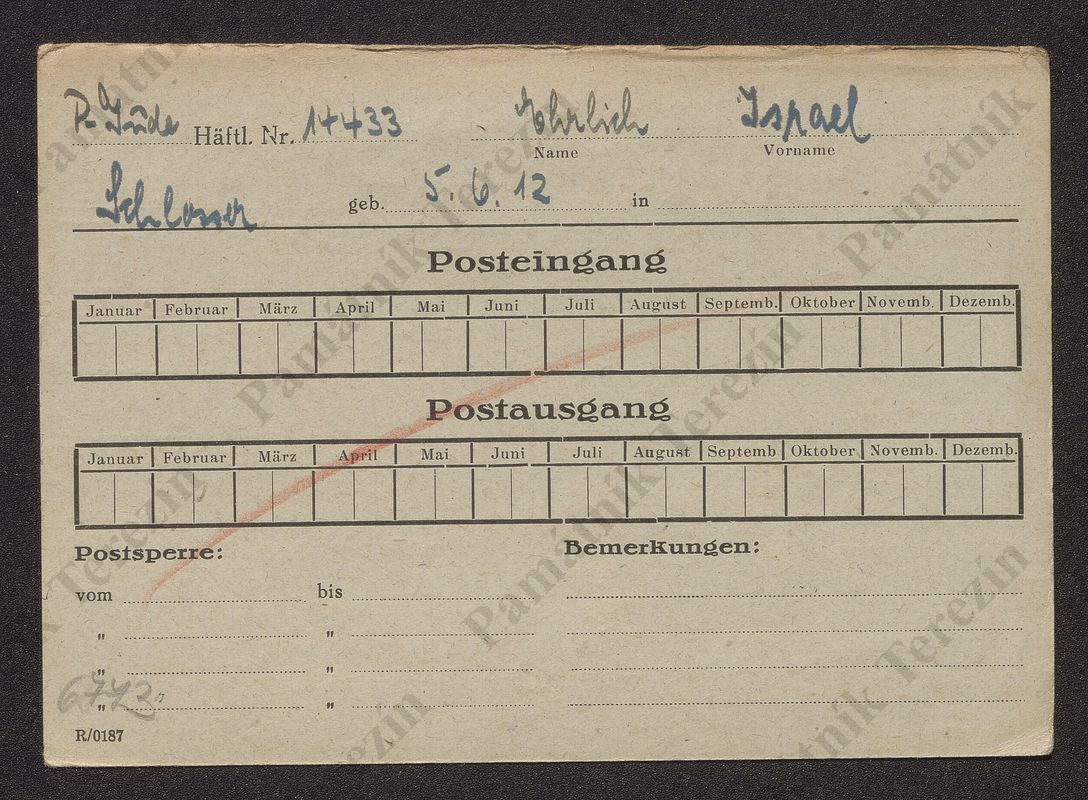 P. Jude Häftl. Nr. 14433 Ehrlich Israel
Name Vorname
Schlosser geb. 5.6.12 in
Posteingang
Januar Februar März April Mai Juni Juli August Septemb. Oktober Novemb. Dezemb.
Postausgang
Januar Februar März April Mai Juni Juli August Septemb Oktober Novemb. Dezemb.
Postsperre: Bemerkungen:
vom bis
" "
" "
" "
R/0187
Památník Terezín